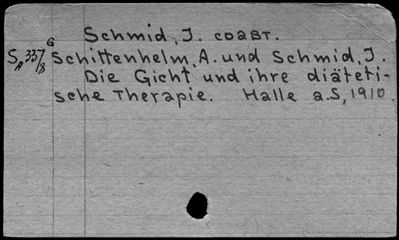 Schmid, J. coавт.
S 337/8 G
A
Schittenhelm, A. und Schmid, J.
Die Gicht und ihre diäteti-
sche Therapie. Halle a.S, 1910.